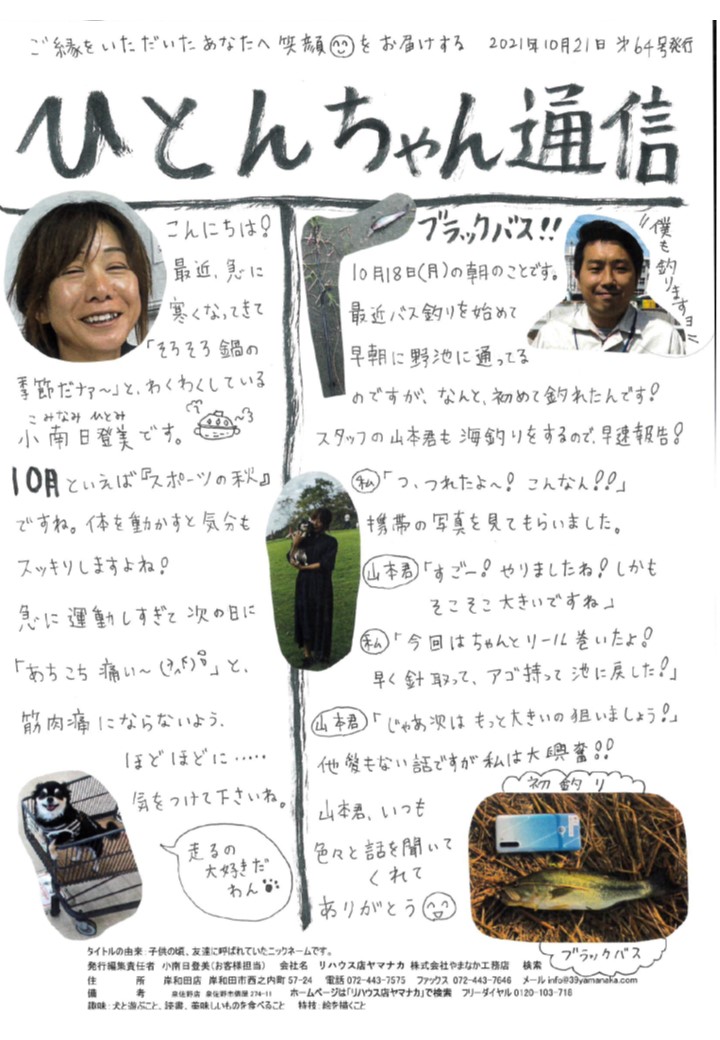 ご縁をいただいたあなたへ 笑顔をお届けする 2021年10月21日 第64号発行
ひとんちゃん通信
こんにちは!
最近、急に
寒くなってきて
「そろそろ鍋の
季節だナァ〜」と、わくわくしている
こみなみ ひとみ
小南日登美です。
10月といえば『スポーツの秋』
ですね。体を動かすと気分も
スッキリしますよね!
急に運動しすぎて次の日に
「あちこち痛い〜」と、
筋肉痛にならないよう、
ほどほどに……
気をつけて下さいね。
走るの
大好きだ
わん
ブラックバス!!
"僕も釣りますョ"
10月18日(月)の朝のことです。
最近バス釣りを始めて
早朝に野池に通ってる
のですが、なんと、初めて釣れたんです!
スタッフの山本君も海釣りをするので、早速報告!
私「つ、つれたよ〜! こんなん!!」
携帯の写真を見てもらいました。
山本君「すごー! やりましたね! しかも
そこそこ大きいですね」
私「今回はちゃんとリール巻いたよ!
早く針取って、アゴ持って池に戻した!」
山本君「じゃあ次はもっと大きいの狙いましょう!」
他愛もない話ですが私は大興奮!!
山本君、いつも
色々と話を聞いて
くれて
ありがとう
初釣り
ブラックバス
タイトルの由来:子供の頃、友達に呼ばれていたニックネームです。
発行編集責任者 小南日登美(お客様担当) 会社名 リハウス店ヤマナカ 株式会社やまなか工務店 検索
住 所 岸和田店 岸和田市西之内町57-24 電話 072-443-7575 ファックス 072-443-7646 メール info@39yamanaka.com
備 考 泉佐野店 泉佐野市俵屋274-11 ホームページは「リハウス店ヤマナカ」で検索 フリーダイヤル 0120-103-716
趣味:犬と遊ぶこと、読書、美味しいものを食べること 特技:絵を描くこと